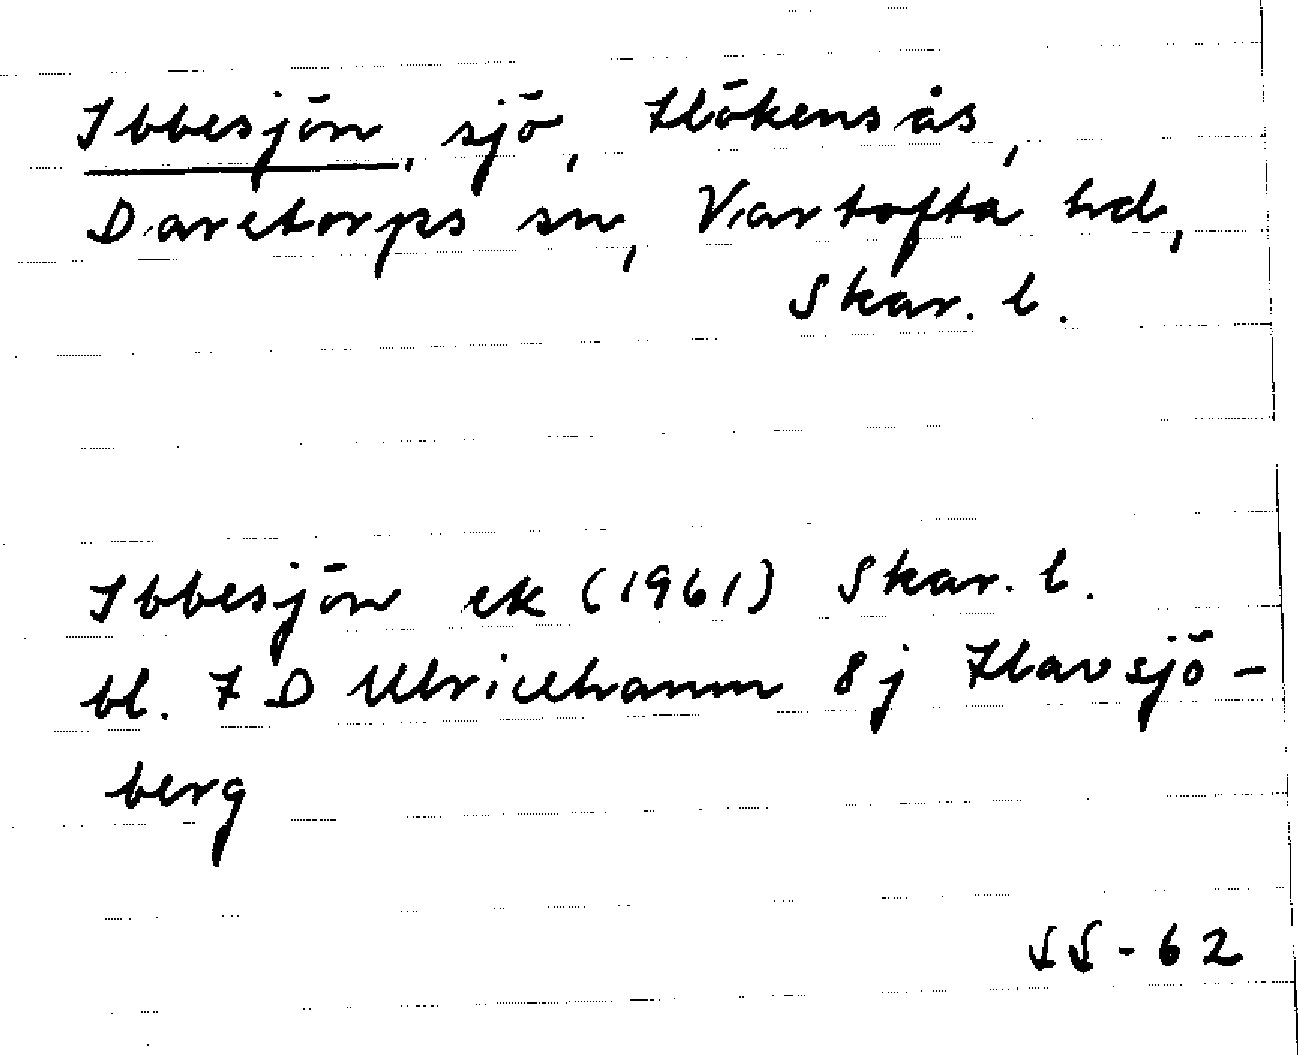 Ibbesjön, sjö, Hökensås,
Daretorps sn, Vartofta hd,
Skar. l.
Ibbesjön ek (1961) Skar. l.
bl. 7 D Ulricehamn 8j Havsjö-
berg
SS-62